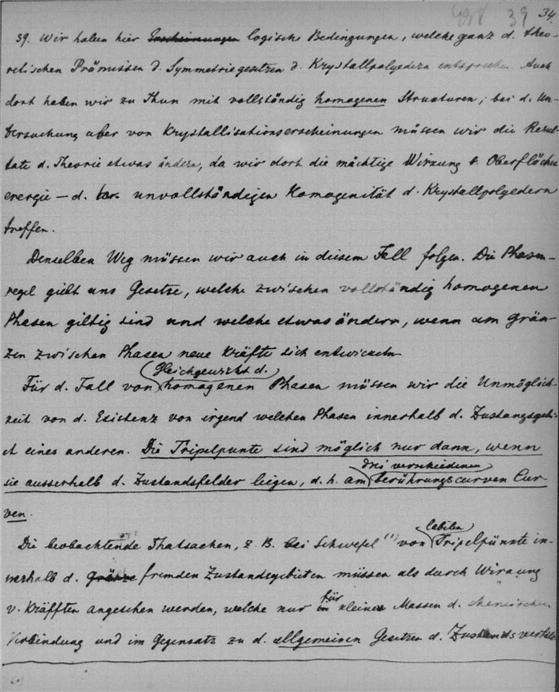 39 34
39. Wir haben hier logische Bedingungen, welche ganz d. theo-
retischen Prämissen d. Symmetriegesetzen d. Krystallpolyedern entsprechen. Auch
dort haben wir zu Thun mit vollständig homogenen Structuren; bei d. Un-
tersuchung aber von Krystallisationserscheinungen müssen wir die Resul-
tate d. Theorie etwas ändern, da wir dort die mächtige Wirkung d. Oberfläche
energie – d. unvollständigen Homogenität d. Krystallpolyedern
treffen.
Denselben Weg müssen wir auch in diesem Fall folgen. Die Phasen-
regel giebt uns Gesetze, welche zwischen vollständig homogenen
Phasen giltig sind und welche etwas ändern, wenn am Grän-
zen zwischen Phasen neue Kräfte sich entwickeln.
Gleichgewicht d.
Für d. Fall von homogenen Phasen müssen wir die Unmöglich-
keit von d. Existenz von irgend welchen Phasen innerhalb d. Zustangsgebi-
et eines anderen. Die Tripelpunte sind möglich nur dann, wenn
drei verschiedenen
sie ausserhalb d. Zustandsfelder liegen, d. h. am berührungscurven Cur-
ven.
labilen
Die beobachtende Thatsachen, z. B. bei Schwefel (1) von Tripelpünnte in-
nerhalb d. fremden Zustandsgebieten müssen als durch Wirkung
für
v. Kräfften angesehen werden, welche nur kleine Massen d. chemischen
Verbindung und im Gegensatz zu d. allgemeinen Gesetzen d. Zustands